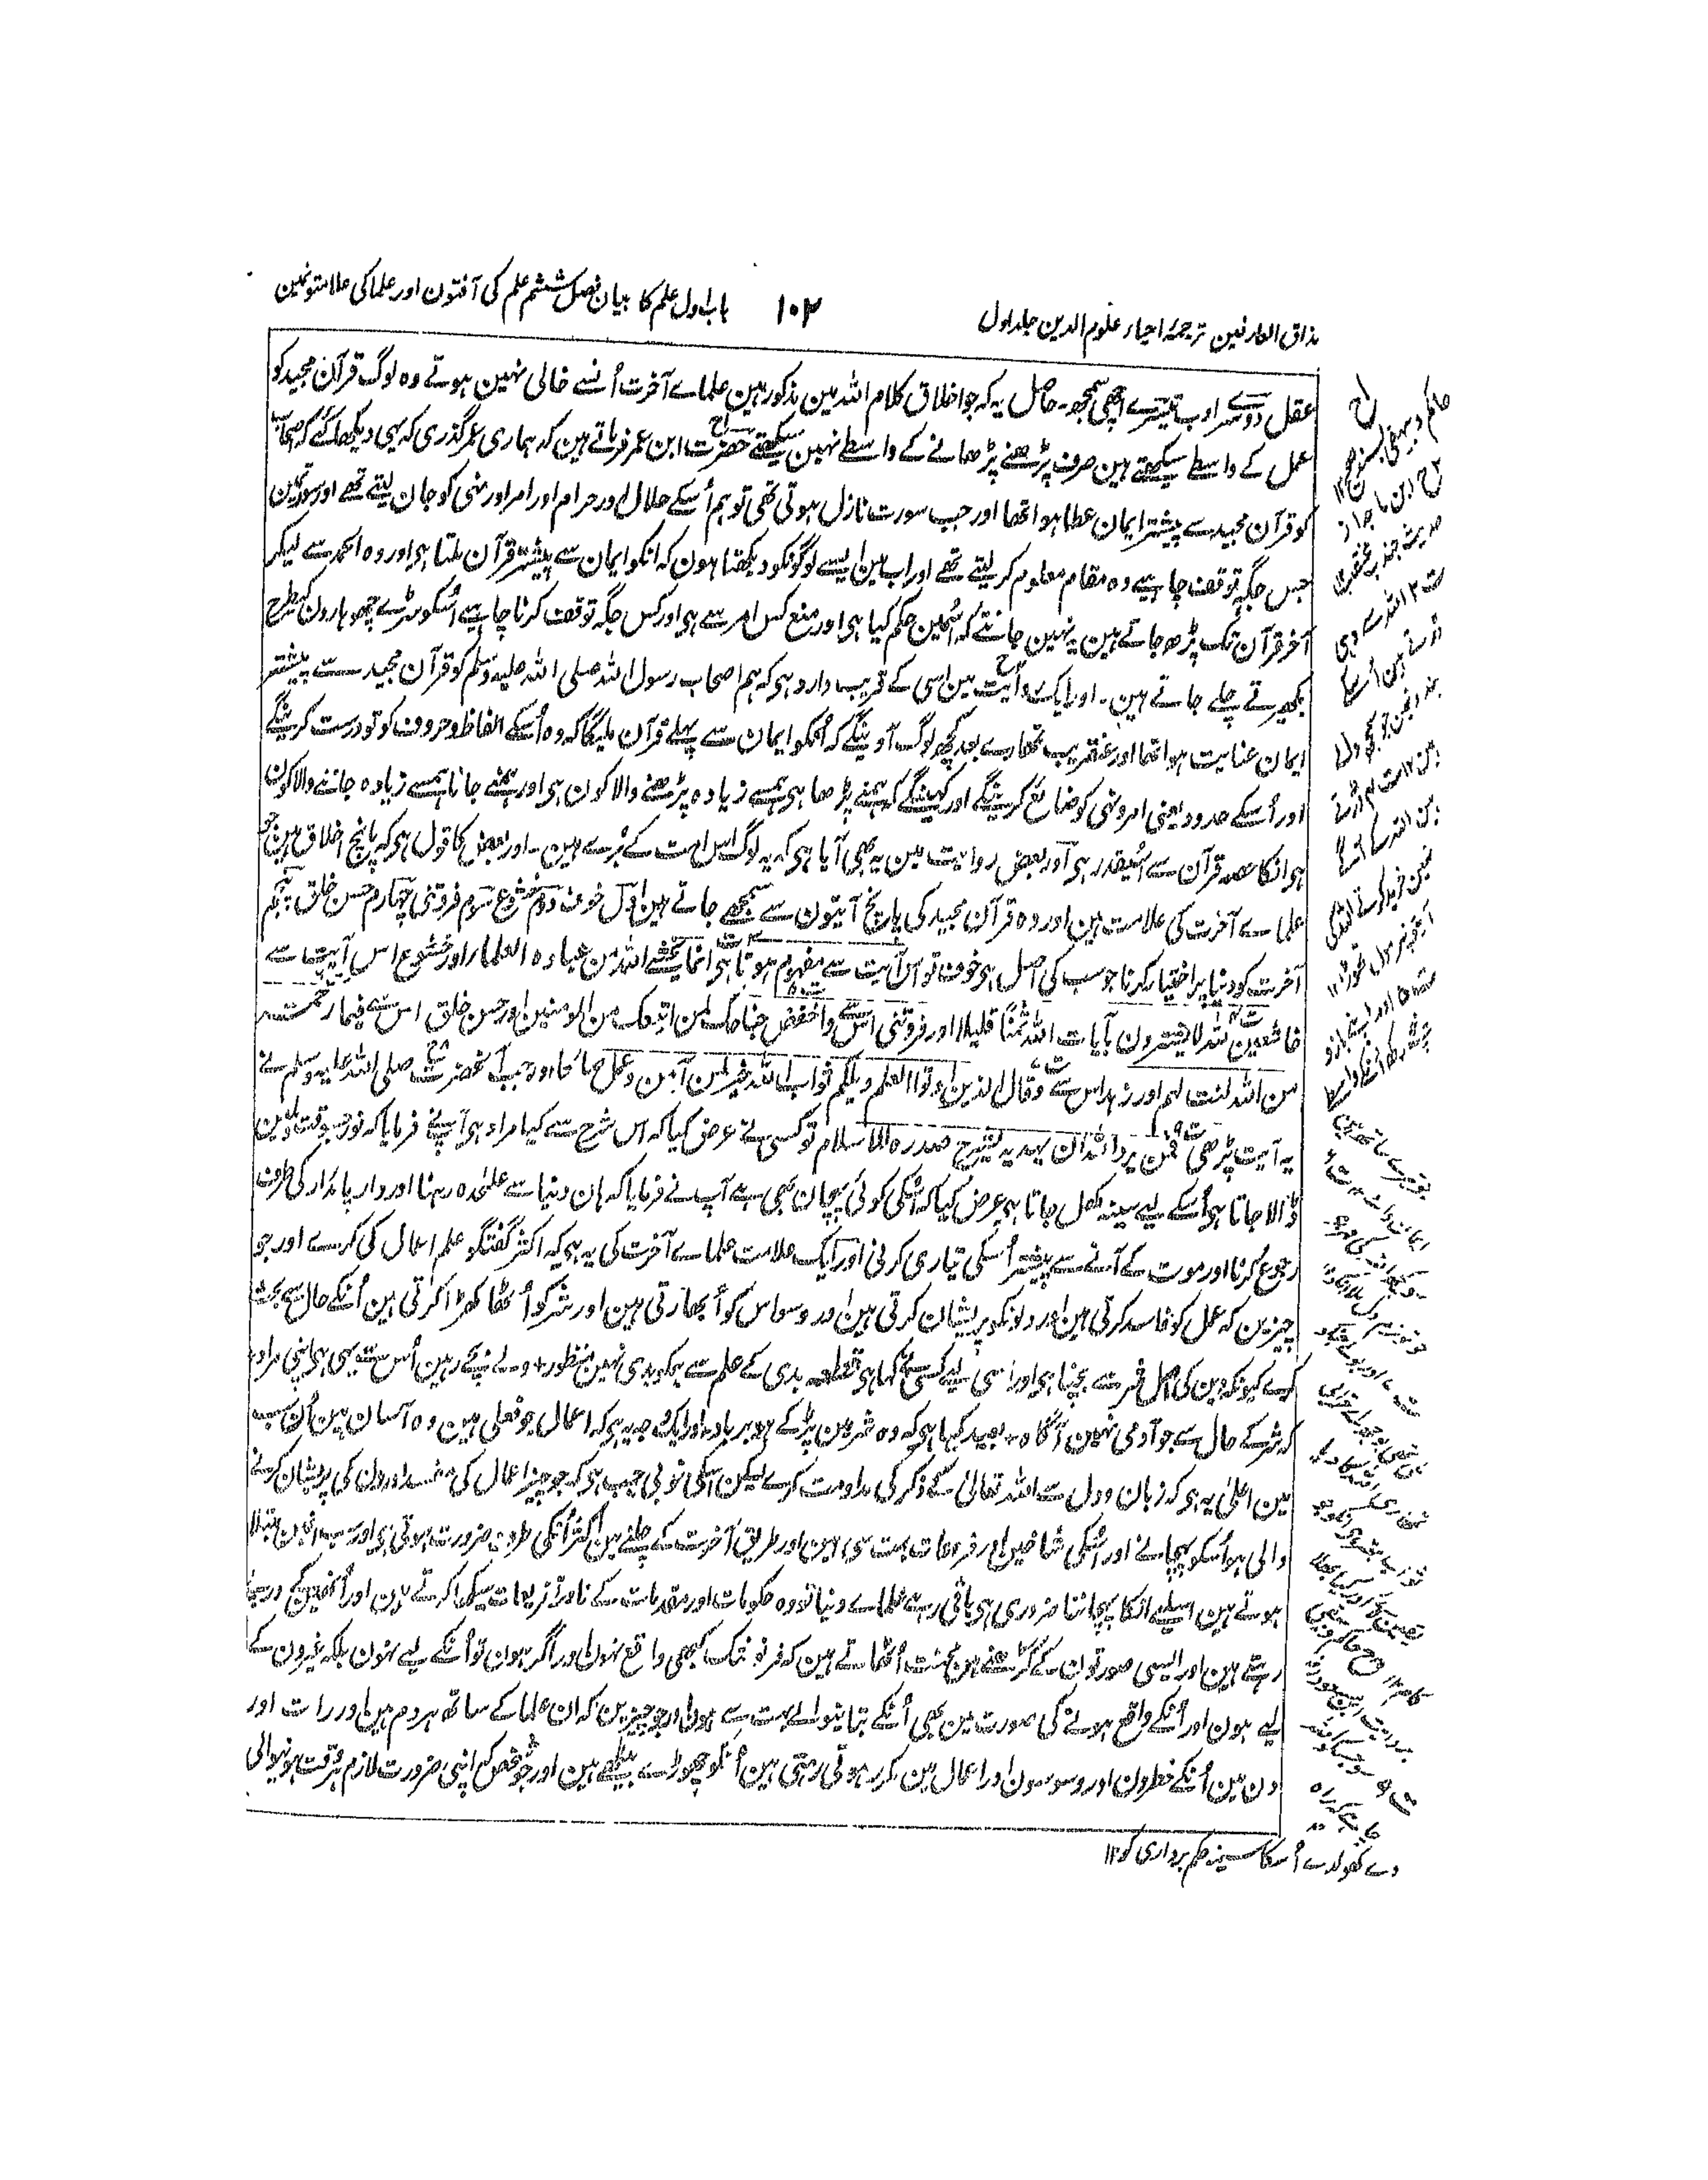 مذاق العارفین ترجمۂ احیاء علوم الدین جلد اول
۱۰۲
باب اول علم کا بیان فصل ششم علم کی آفتون اور علما کی علامتونمین
عقل دوسرے ادب تیسرے اچھی سمجھ۔ حاصل یہ کہ جو اخلاق کلام اللہ مین مذکور ہین علماے آخرت اُنسے خالی نہین ہوتے وہ لوگ قرآن مجید کو
عمل کے واسطے سیکھتے ہین صرف پڑھنے پڑھانے کے واسطے نہین سیکھتے حضرت ابن عمر فرماتے ہین کہ ہماری عمر گذری کہ یہی دیکھا کئے کہ صحابہ
کو قرآن مجید سے پیشتر ایمان عطا ہوا تھا اور جب سورت نازل ہوتی تھی تو ہم اُسکے حلال اور حرام اور امر اور نہی کو جان لیتے تھے اور سورتمین
جس جگہ توقف چاہیے وہ مقام معلوم کر لیتے تھے اور اب مین ایسے لوگونکو دیکھتا ہون کہ انکو ایمان سے پیشتر قرآن ملتا ہی اور وہ الحمد سے لیکر
آخر قرآن تک پڑھ جاتے ہین یہ نہین جانتے کہ اُسمین حکم کیا ہی اور منع کس امر سے ہی اور کس جگہ توقف کرنا چاہیے اُسکو سڑے چھوہارون کیطرح
بکھیرتے چلے جاتے ہین۔ اور ایک روایت مین اسی کے قریب وارد ہی کہ ہم اصحاب رسول اللہ صلی اللہ علیہ وسلم کو قرآن مجید سے پیشتر
ایمان عنایت ہوا تھا اور عنقریب تمھارے بعد کچھ لوگ آوینگے کہ اُنکو ایمان سے پہلے قرآن ملیگا کہ وہ اُسکے الفاظ و حروف کو تو درست کرینگے
اور اُسکے حدود یعنی امر و نہی کو ضائع کرینگے اور کہینگے کہ ہمنے پڑھا ہی ہمسے زیادہ پڑھنے والا کون ہی اور ہمنے جانا ہمسے زیادہ جاننے والا کون
ہی انکا حصہ قرآن سے اُسیقدر ہی اور بعض روایت مین یہ بھی آیا ہی کہ یہ لوگ اس امت کے بُرے ہین۔ اور بعض کا قول ہی کہ پانچ اخلاق ہین جو
علماے آخرت کی علامت ہین اور وہ قرآن مجید کی پانچ آیتون سے سمجھے جاتے ہین اول خوف دوم خشوع سوم فروتنی چہارم حسن خلق پنجم
آخرت کو دنیا پر اختیار کرنا جو سب کی اصل ہی خوف تو اس آیت سے مفہوم ہوتا ہی انما یخشے اللہ من عبادہ العلماء اور خشوع اس آیت سے
خاشعین للہ لا یشترون بآیات اللہ ثمنًا قلیلا اور فروتنی اس سے واخفض جناحک لمن اتبعک من المومنین اور حسن خلق اس سے فبما رحمت
من اللہ لنت لہم اور زہد اس سے وقال الذین اوتوا العلم ویلکم ثواب اللہ خیر لمن آمن وعمل صالحا اور جب آنحضرت صلی اللہ علیہ وسلم نے
یہ آیت پڑھی فمن یرد اللہ ان یہدیہ یشرح صدرہ للاسلام تو کسی نے عرض کیا کہ اس شرح سے کیا مراد ہی آپنے فرمایا کہ نور جسوقت دلمین
ڈالا جاتا ہی اُسکے لیے سینہ کھل جاتا ہی عرض کیا کہ اُسکی کوئی پہچان بھی ہے آپ نے فرمایا کہ ہان دنیا سے علٰحدہ رہنا اور دار پائدار کی طرف
رجوع کرنا اور موت کے آنے سے پیشتر اُسکی تیاری کرنی اور ایک علامت علماے آخرت کی یہ ہی کہ اکثر گفتگو علم اعمال کی کرے اور جو
چیزین کہ عمل کو فاسد کرتی ہین اور دلونکو پریشان کرتی ہین اور وسواس کو اُبھارتی ہین اور شر کو اُٹھا کھڑا کرتی ہین اُنکے حال سے بحث
کرے کیونکہ دین کی اصل شر سے بچنا ہی اور اسی لیے کسی نے کہا ہی قطعہ بدی کے علم سے ہمکو بدی نہین منظور + ولے بچے رہین اُس سے یہی ہی اپنی مراد +
کہ شر کے حال سے جو آدمی نہین آگاہ + بعید کیا ہی کہ وہ شر مین پڑ کے ہو برباد اور ایک وجہ یہ ہی کہ اعمال جو فعلی ہین وہ آسان ہین اُن سب
مین اعلیٰ یہ ہی کہ زبان و دل سے اللہ تعالیٰ کے ذکر کی مداومت کرے لیکن اُسکی خوبی جب ہی کہ جو چیز اعمال کی مفسد اور دل کی پریشان کرنے
والی ہو اُسکو پہچانے اور اُسکی شاخین اور فروعات بہت سی ہین اور طریق آخرت کے چلنے مین اکثر اُنکی طرف ضرورت ہوتی ہی اور سب انمین مبتلا
ہوتے ہین اسلیے انکا پہچاننا ضروری ہی باقی رہے علماے دنیا تو وہ حکومات اور مقدمات کے نادر تفریعات سیکھا کرتے ہین اور اُنھین کے درپے
رہتے ہین اور ایسی صورتون کے گڑھنے مین محنت اُٹھاتے ہین کہ قرنون تک کبھی واقع نہون اور اگر ہون تو اُنکے لیے نہون بلکہ غیرون کے
لیے ہون اور اُنکے واقع ہونے کی صورت مین بھی اُنکے بتانیوالے بہت سے ہون اور جو چیزین کہ ان علما کے ساتھ ہر دم ہین اور رات اور
دن مین اُنکے خطرون اور وسوسون اور اعمال مین مکرر ہوتی رہتی ہین اُنکو چھوڑے بیٹھے ہین اور جو شخص کہ اپنی ضرورت لازم ہر وقت ہونیوالی
دے کھولدے اُسکا سینہ حکم برداری کو ۱۲